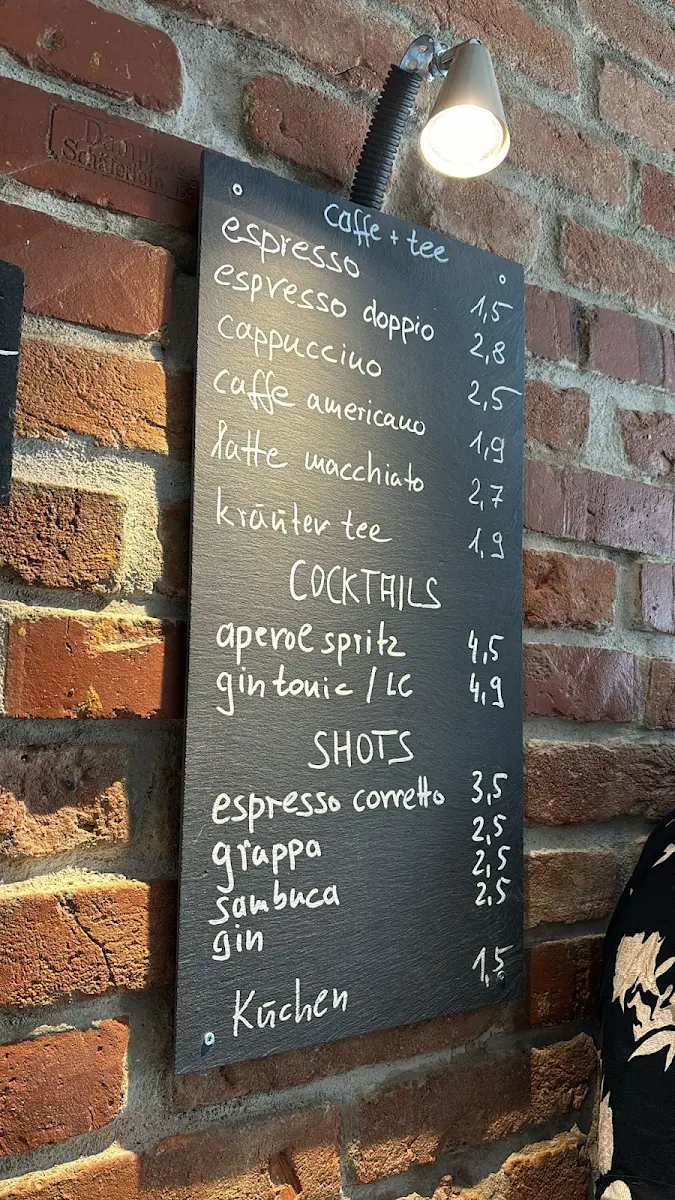 Dampf
Schäferlein
caffe + tee
espresso 1,5
espresso doppio 2,8
cappuccino 2,5
caffe americano 1,9
latte macchiato 2,7
kräuter tee 1,9
COCKTAILS
aperol spritz 4,5
gin tonic / LC 4,9
SHOTS
espresso corretto 3,5
grappa 2,5
sambuca 2,5
gin 2,5
Kuchen 1,5